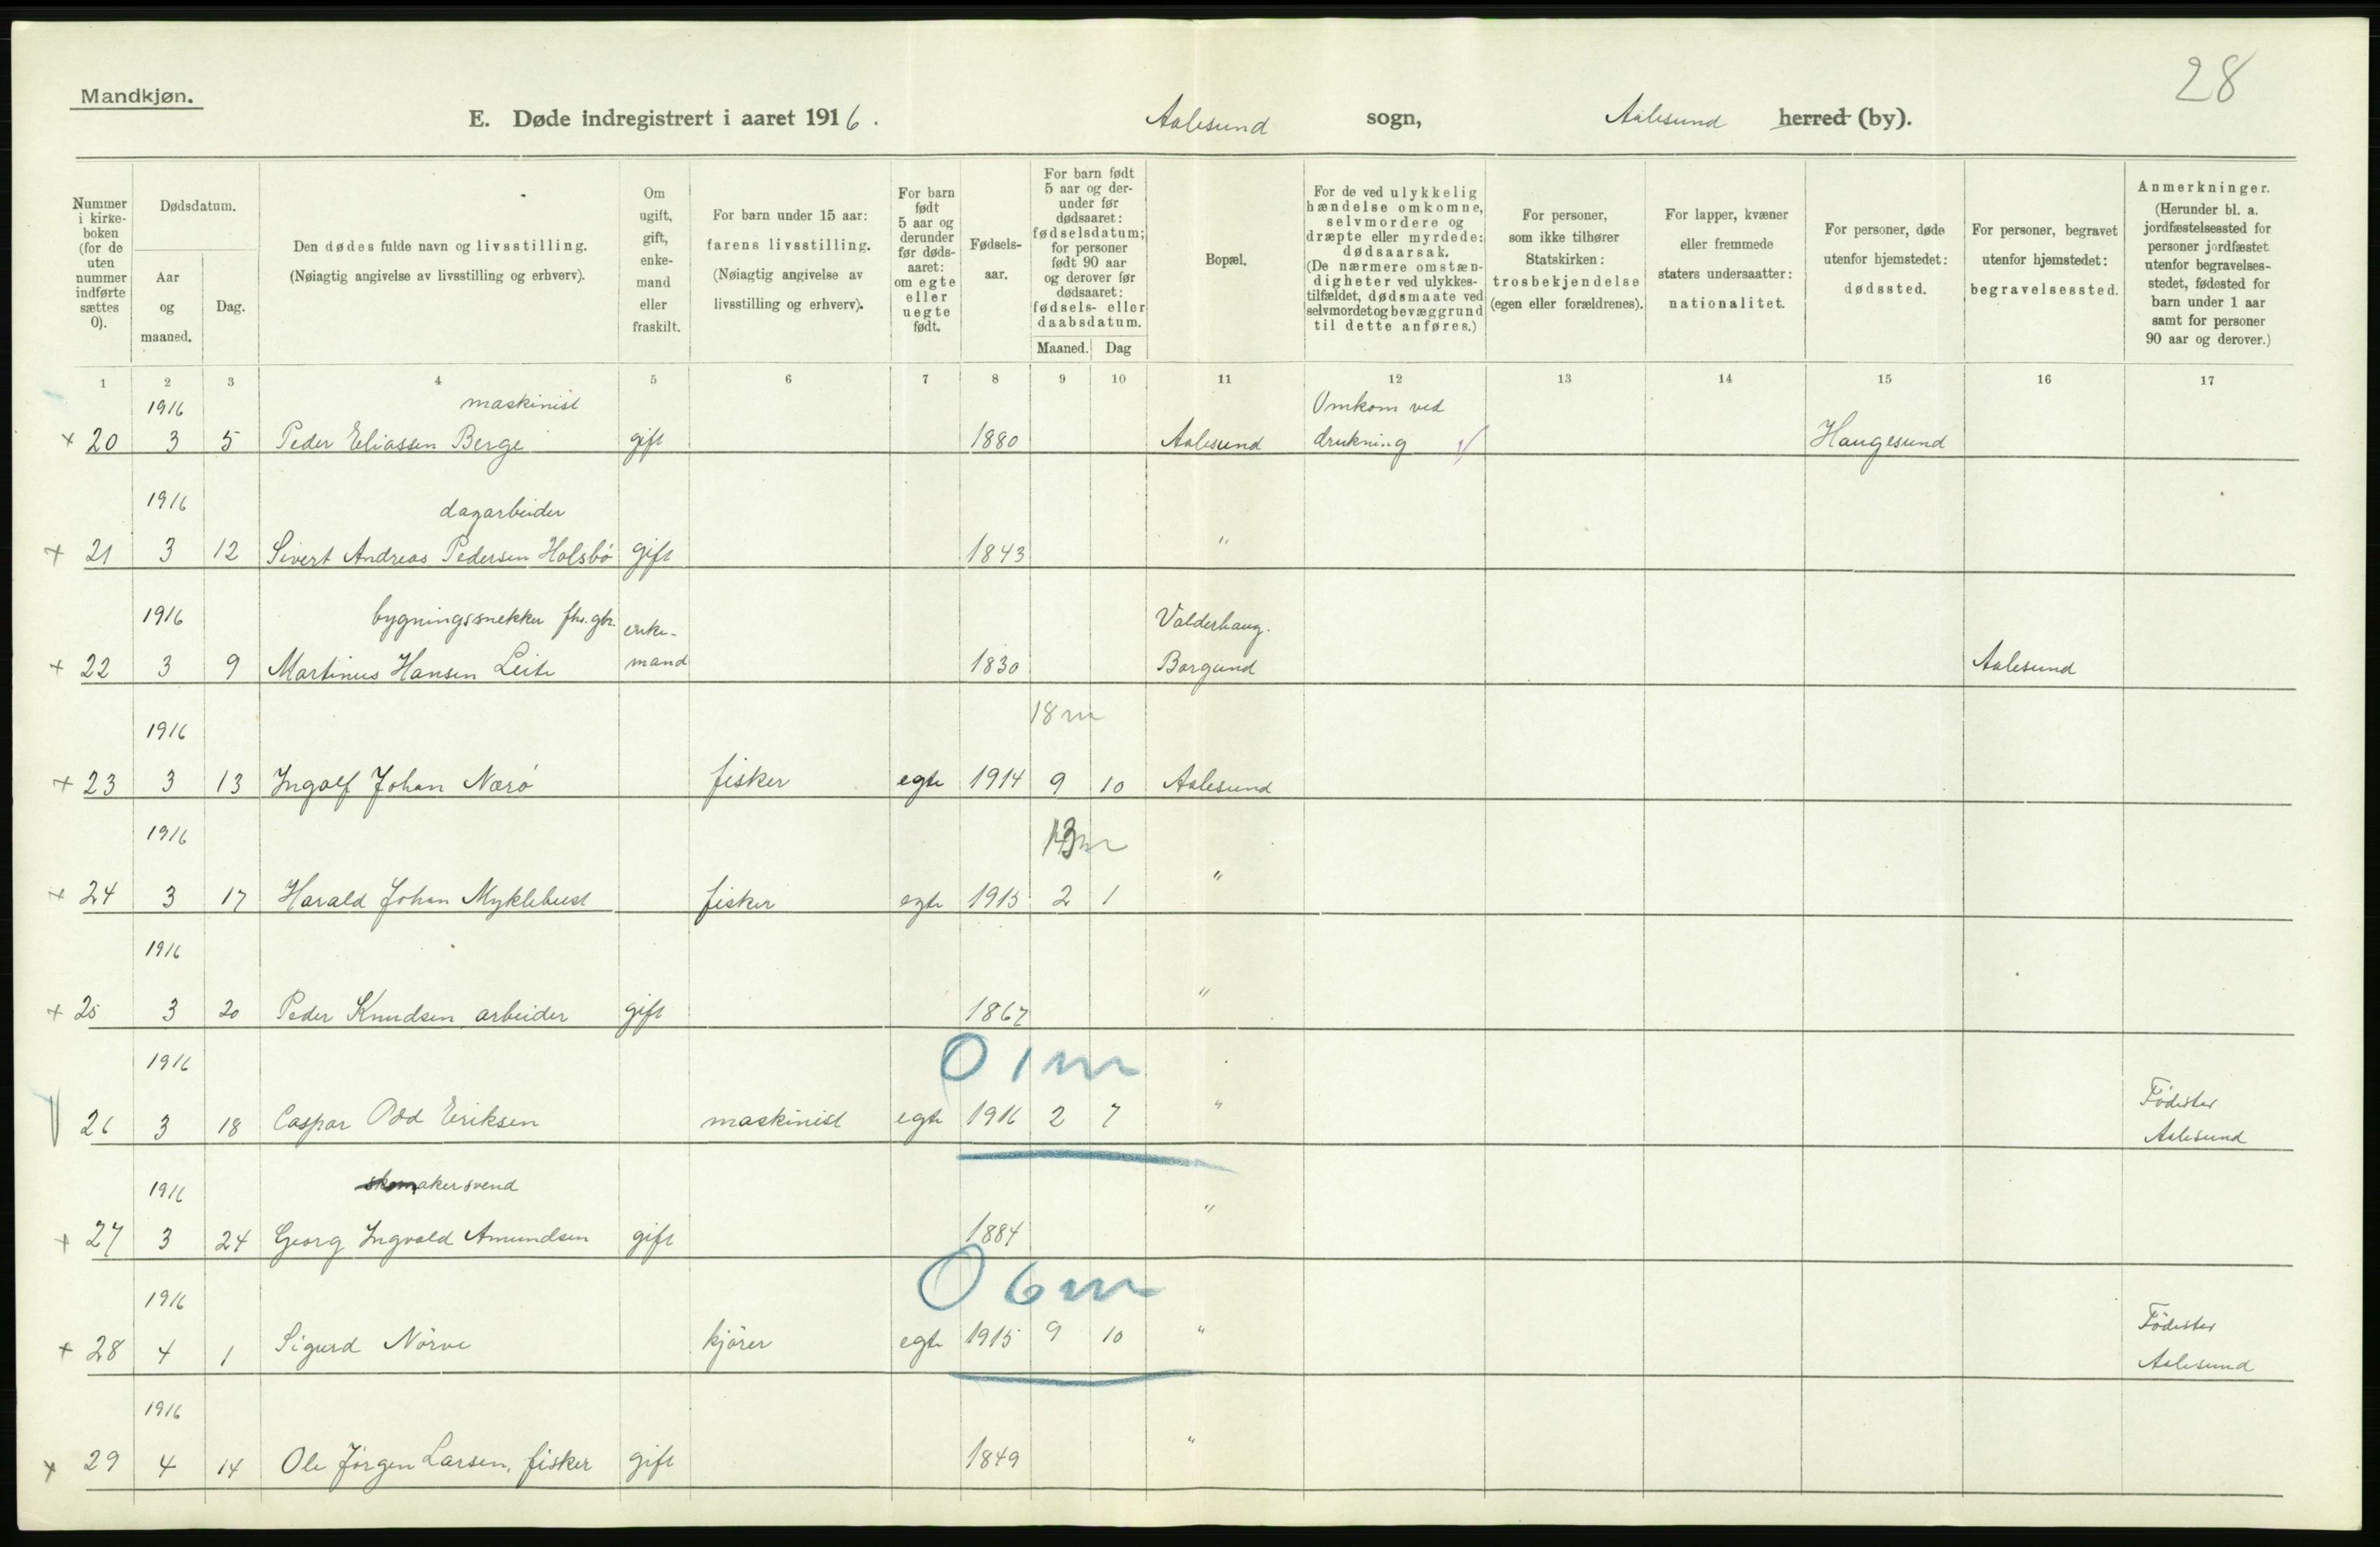 28
Mandkjøn.
E. Døde indregistrert i aaret 1916. Aalesund sogn, Aalesund herred (by).
Nummer i kirke-boken (for de uten nummer indførte sættes 0).
Dødsdatum.
Aar og maaned.
Dag.
Den dødes fulde navn og livsstilling.
(Nøiagtig angivelse av livsstilling og erhverv).
Om ugift, gift, enke-mand eller fraskilt.
For barn under 15 aar: farens livsstilling.
(Nøiagtig angivelse av livsstilling og erhverv).
For barn født 5 aar og derunder før døds-aaret: om egte eller uegte født.
Fødsels-aar.
For barn født 5 aar og der-under før dødsaaret: fødselsdatum; for personer født 90 aar og derover før dødsaaret: fødsels- eller daabsdatum.
Maaned. Dag
Bopæl.
For de ved ulykkelig hændelse omkomne, selvmordere og dræpte eller myrdede: dødsaarsak.
(De nærmere omstæn-digheter ved ulykkes-tilfældet, dødsmaate ved selvmordet og bevæggrund til dette anføres.)
For personer, som ikke tilhører Statskirken: trosbekjendelse (egen eller forældrenes).
For lapper, kvæner eller fremmede staters undersaatter: nationalitet.
For personer, døde utenfor hjemstedet: dødssted.
For personer, begravet utenfor hjemstedet: begravelsessted.
Anmerkninger.
(Herunder bl. a. jordfæstelsessted for personer jordfæstet utenfor begravelses-stedet, fødested for barn under 1 aar samt for personer 90 aar og derover.)
1 2 3 4 5 6 7 8 9 10 11 12 13 14 15 16 17
1916 maskinist Omkom ved
× 20 3 5 Peder Eliassen Berge gift 1880 Aalesund drukning √ Haugesund
1916 dagarbeider
+ 21 3 12 Sivert Andreas Pedersen Holsbø gift 1843 "
1916 bygningssnekker fhv. gbr. enke- Valderhaug.
+ 22 3 9 Martinus Hansen Leite mand 1830 Borgund Aalesund
1916 18 m
+ 23 3 13 Ingolf Johan Nærø fisker egte 1914 9 10 Aalesund
1916 13 m
+ 24 3 17 Harald Johan Myklebust fisker egte 1915 2 1 "
1916
+ 25 3 20 Peder Knudsen arbeider gift 1867 "
1916 0 1 m
26 3 18 Caspar Odd Eriksen maskinist egte 1916 2 7 " Födester Aalesund
1916 skomakersvend
+ 27 3 24 Georg Ingvald Amundsen gift 1884 "
1916 0 6 m
+ 28 4 1 Sigurd Nörve kjörer egte 1915 9 10 " Födester Aalesund
1916
+ 29 4 14 Ole Jörgen Larsen, fisker gift 1849 "